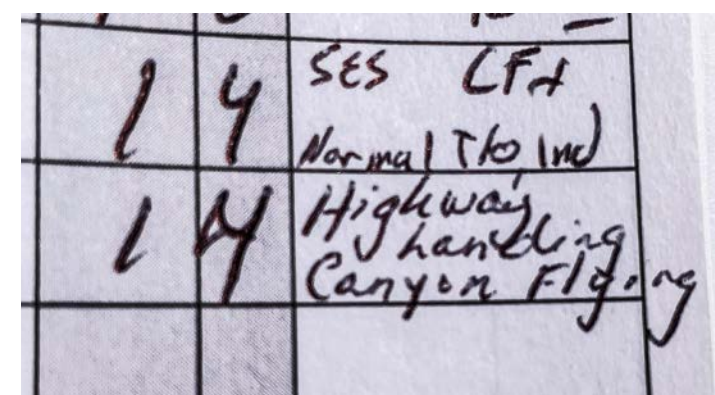 1 4 SES CFI
Normal T/O, lnd
1 4 Highway
handling
Canyon Flying